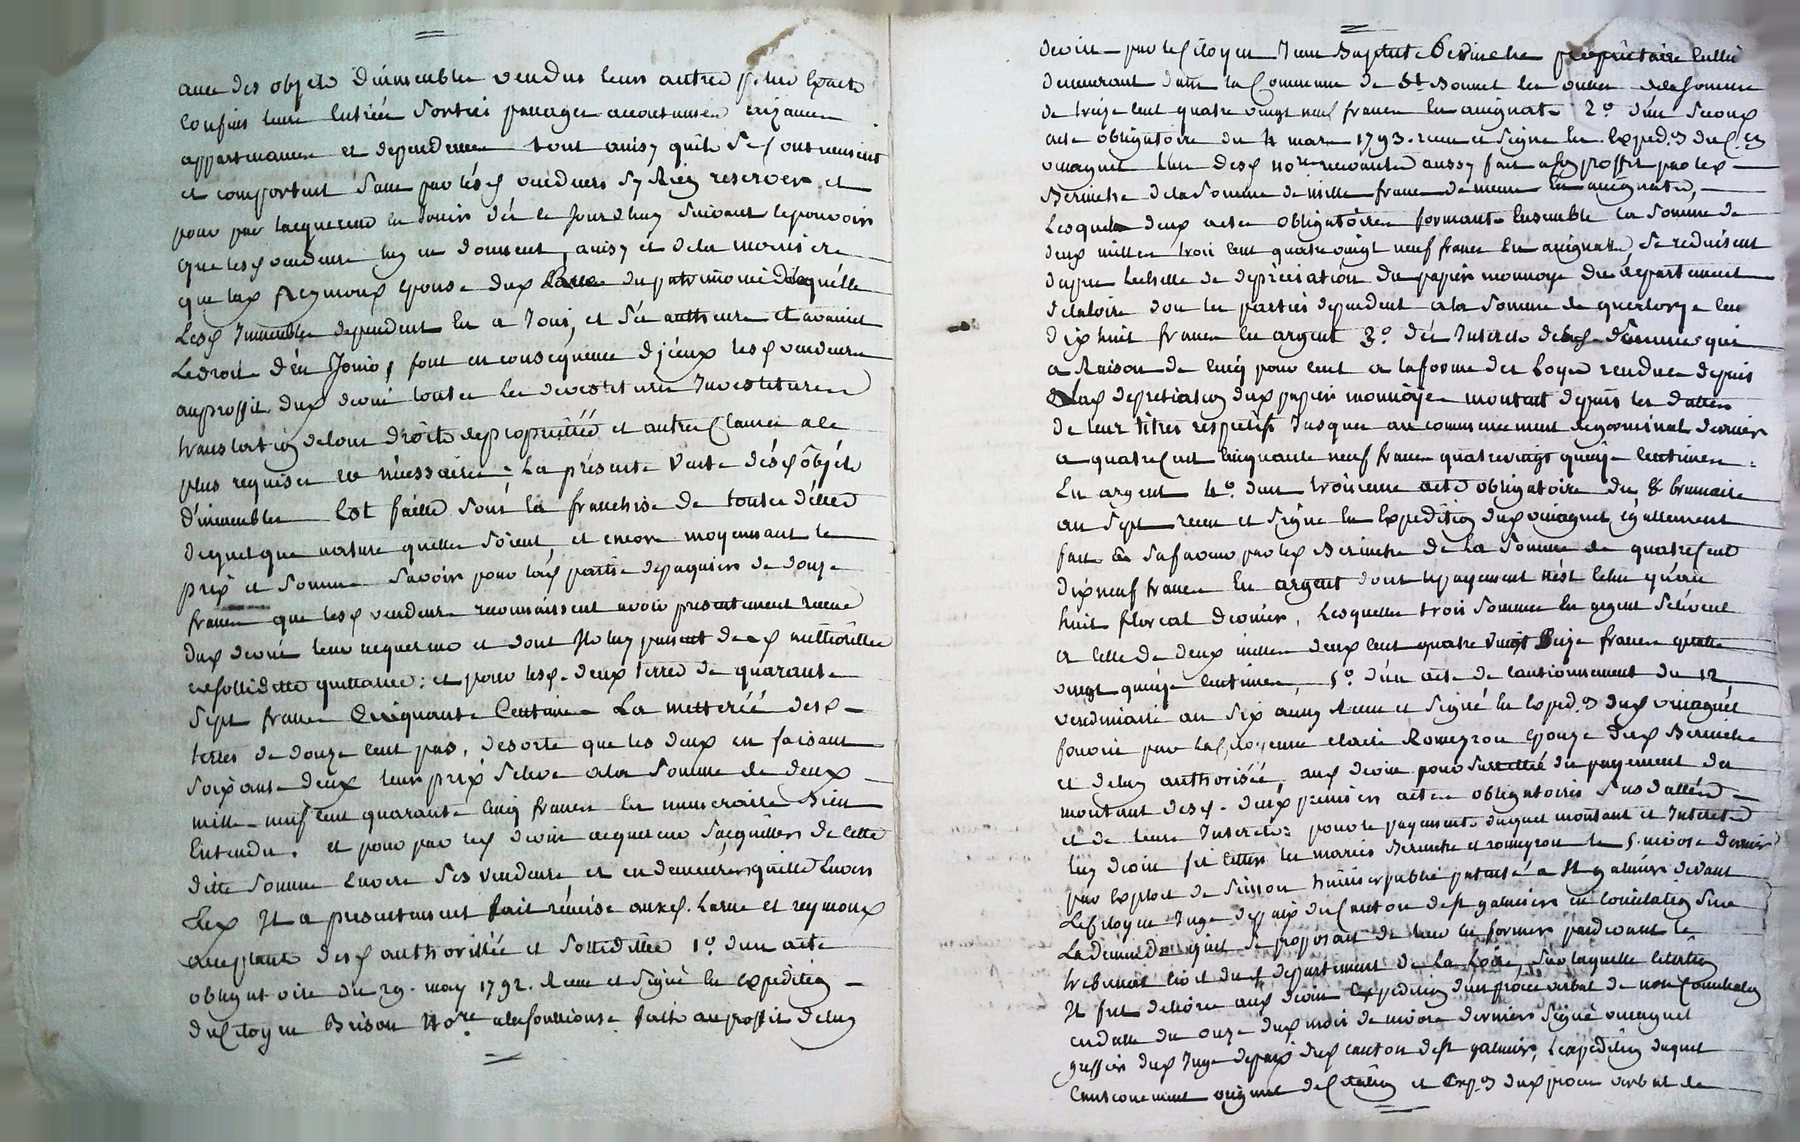 avec des objets d'immeubles vendus leurs autres plus exacts
confins leurs entrées sorties passages accoutumés aizances
appartenances et dependences tout ainsy qu'ils se continuent
et comportent sans par lesd vendeurs s'y rien reserver et
pour par lacquereur en Jouir dès ce Jourdhuy suivant le pouvoir
que lesd vendeurs luy en donnent, ainsy et de la manière
que lad Reymoux epouse dud Larue du patrimoine de laquelle
Lesd Immeubles dependent en a Joui, et ses autheurs et avoient
Le droit d'en Jouir, font en consequence d'iceux lesd vendeurs
au proffit dud devin toutes les devestitures Investitures
translation de tous droits de propriétés et autres Clauses a ce
plus requises et nécessaires: La présente Vente desd objets
d'immeubles Est faitte sous la franchise de toutes dettes
de quelque nature quelles soient et encore moyennant le
prix et somme savoir pour lad partie de paquiers de douze
francs que lesd vendeurs reconnaissent avoir presentement reçue
dud devin leur acquereur et dont Ils luy passent lesd authorisée
et sollidittée quittance: et pour lesd. deux terres de quarante
sept francs Cinquante Centimes La metterée desd
terres de douze cent pas, de sorte que les deux en faisant
soixante deux leurs prix s'eleve a la somme de deux
mille neuf cent quarante cinq francs en numeraire Bien
Entendu. et pour par led devin acquereur s'acquitter de cette
ditte somme Envers ses vendeurs et en demeurer quitte Envers
Eux Il a presentement fait remise auxd. Larue et reymoux
acceptants desd authorisée et sollidittée 1º. d'un acte
obligatoire du 29. may 1792. Reçu et signé en expedition
du Citoyen Brison Nore a la fouillouse fait au proffit de luy
devin par le Citoyen Jean Baptiste Berinche propriétaire Cultr
demeurant dans la Commune de St. Bonnet les oulles de la somme
de treize cent quatre vingt neuf francs en assignats 2º. d'un second
acte obligatoire du 4 mars 1793. reçu et signé en Expedon. du Cen
vinagnet l'un desd nores recevants aussy fait a son proffit par led
Berinche de la somme de mille francs de meme en assignats,
Lesquels deux actes obligatoires formants Ensemble la somme de
deux milles trois cent quatre vingt neuf francs En assignats se reduisent
d'apres l'echelle de depreciation du papier monnoye du département
de la loire dou les parties dependent a la somme de quatorze cent
dix huit francs en argent 3º. des Interets desd. sommes qui
a Raison de cinq pour cent a la forme des Loyx rendues depuis
Lad depretiation dud papier monnoye montent depuis les dattes
de leur titres respetifs Jusques au commencement de germinal dernier
a quatre Cent Cinquante neuf francs quatrevingt quinze Centimes:
En argent 4º. d'un troisieme acte obligatoire du 8 brumaire
an sept reçu et signé En Expedition dud vinagnet également
fait a sa faveur par led Berinche de la somme de quatre Cent
dix neuf francs En argent dont le payement n'est Echu qu'au
huit floreal dernier, Lesquelles trois sommes En argent s'elévent
a celle de deux milles deux cent quatre vingt seize francs quatre
vingt quinze Centimes, 5º. d'un acte de cautionnement du 12
vendimiaire an six aussy Reçu et signé En Exped.on dud vinagnet
fourni par la Citoyenne Claire Romeyron Epouze dud Berinche
et de luy authorisée, aud devin pour surretté du payement du
montant desd. deux premiers actes obligatoires susdattés
et de leurs Interets: pour le payement duquel montant et Interets
luy devin fit citter les mariés Berinche et romeyron le 5. nivose dernier
par exploit de simon huissier public patenté a St galmier devant
Le Citoyen Juge de paix du Canton de st galmier en Conciliation sur
La demande qu'il se proposait de leur en former pardevant le
tribunal civil dud département de La Loire, sur laquelle citation
Il fut delivré aud devin Expedition d'un procès verbal de non Conciliation
en datte du onze dud mois de nivose dernier signé vinagnet
greffier dud Juge de paix dud canton de st galmier, l'expedition duquel
Cautionnement original de Citation et Exp.on dud proces verbal de